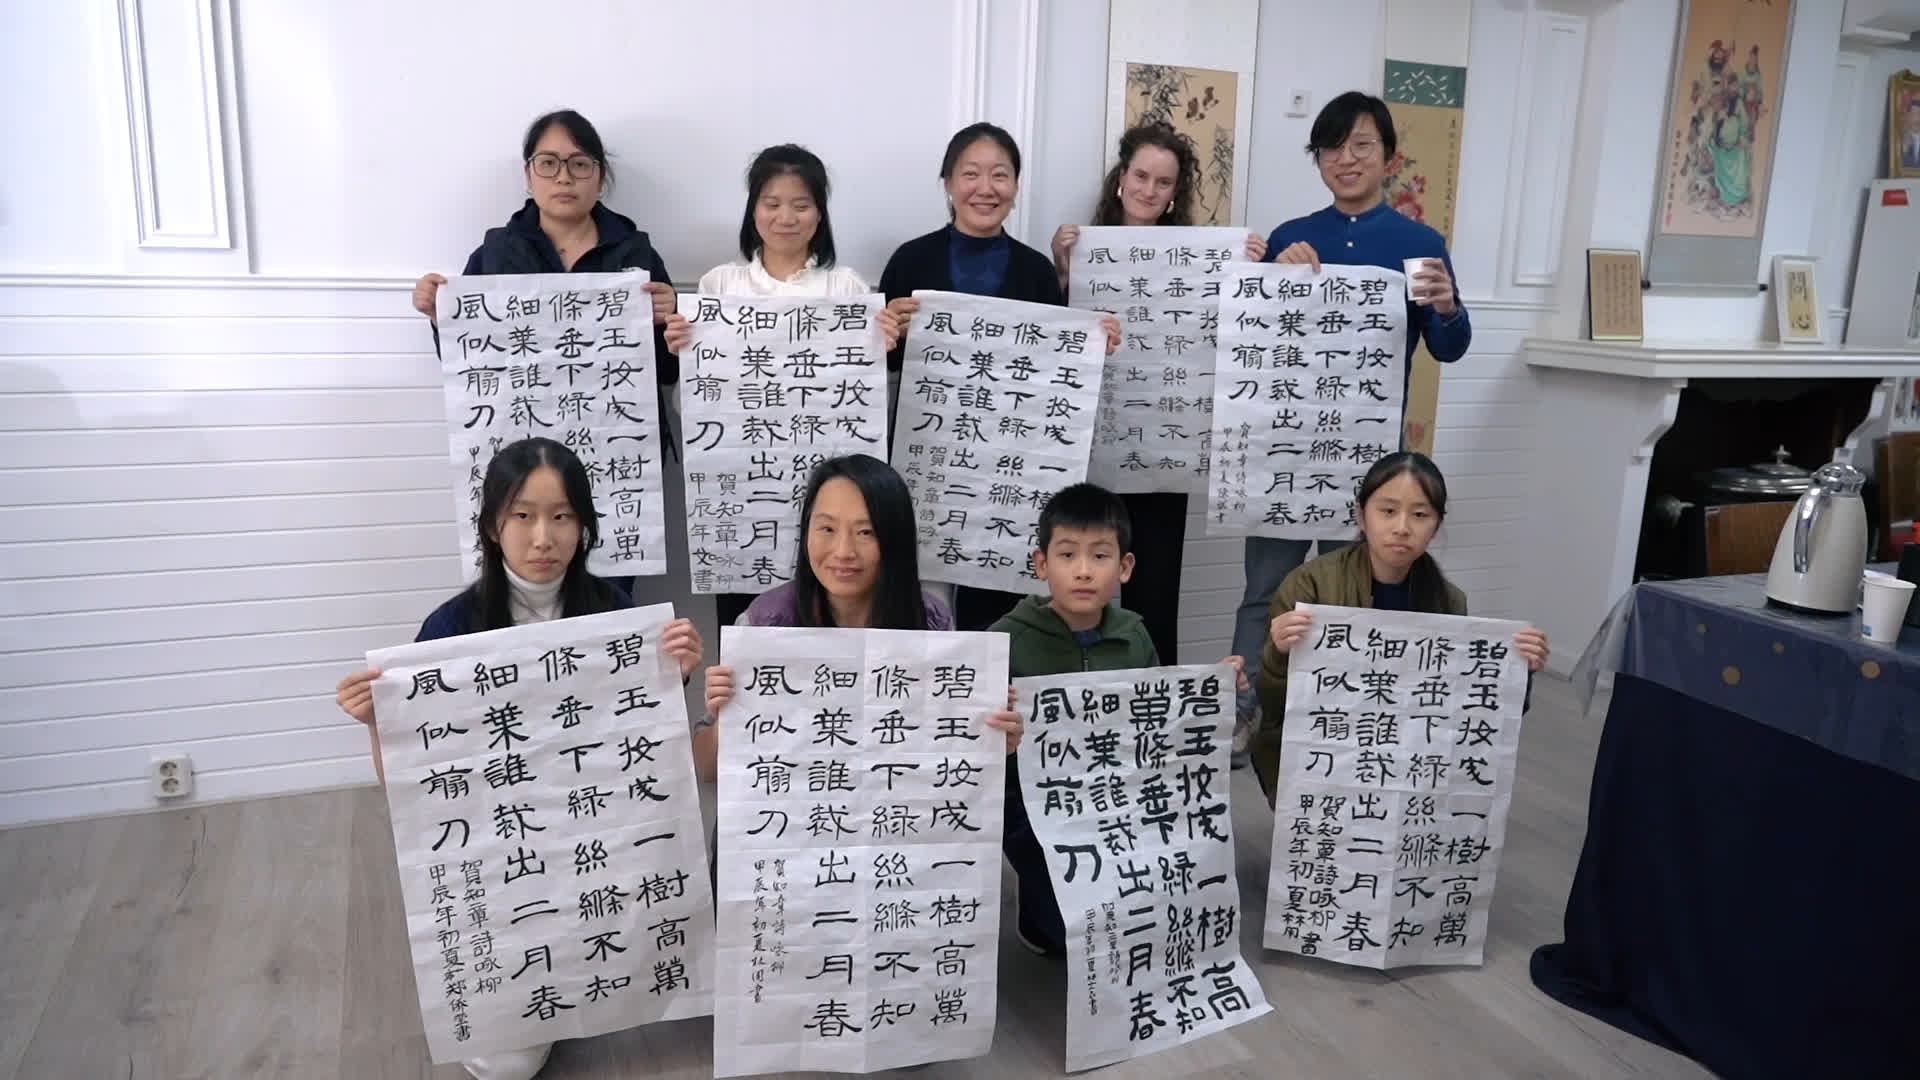 碧玉妆成一樹高萬
條垂下綠絲縧
細葉誰裁出
風似翦刀
賀
甲辰年
碧玉妆成
條垂下綠絲
細葉誰裁出二月春
風似翦刀
賀知章咏柳
甲辰年如書
碧玉妆成一樹高萬
條垂下綠絲縧不知
細葉誰裁出二月春
風似翦刀
賀知章詩咏
甲辰年
碧玉妆成一樹高萬
條垂下綠絲縧不知
細葉誰裁出二月春
風似
賀知章詩咏柳
碧玉妆成一樹高萬
條垂下綠絲縧不知
細葉誰裁出二月春
風似翦刀
賀知章詩咏柳
甲辰初夏書
碧玉妆成一樹高萬
條垂下綠絲縧不知
細葉誰裁出二月春
風似翦刀
賀知章詩咏柳
甲辰年初夏鄭書
碧玉妆成一樹高萬
條垂下綠絲縧不知
細葉誰裁出二月春
風似翦刀
賀知章詩咏柳
甲辰年初夏書
碧玉妆成一樹高
萬條垂下綠絲縧不知
細葉誰裁出二月春
風似翦刀
賀知章詩咏柳
甲辰年初夏書
碧玉妆成一樹高萬
條垂下綠絲縧不知
細葉誰裁出二月春
風似翦刀
賀知章詩咏柳書
甲辰年初夏
問心